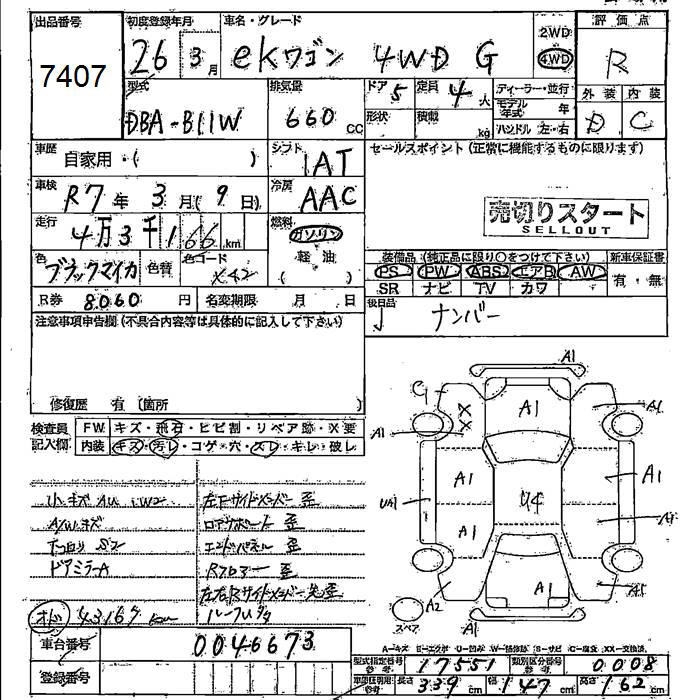 出品番号 初度登録年月 車名・グレード 2WD 評価点
7407 26年 3月 eKワゴン 4WD G 4WD R
型式 排気量 ドア 5 定員 4人 ディーラー・並行 外装 内装
DBA-B11W 660cc 形状 積載 kg モデル年式 年 D C
ハンドル 左・右
車歴 自家用・( ) シフト IAT セールスポイント(正常に機能するものに限ります)
車検 R7年 3月( 9日) 冷房 AAC
走行 4万3千166km 燃料 ガソリン 売切りスタート
SELLOUT
軽油
色 ブラックマイカ 色替 色コード X42 ( )
装備品(純正品に限り○をつけて下さい) 新車保証書
PS PW ABS エアB AW 有・無
SR ナビ TV カワ
R券 8060円 名変期限 月 日 後日品
ナンバー
注意事項申告欄(不具合内容等は具体的に記入して下さい)
修復歴 有(箇所
検査員 FW キズ・飛石・ヒビ割・リペア跡・X要
記入欄 内装 キズ・汚レ・コゲ・穴・スレ・キレ・破レ
小キズ AU W2 左Fサイドメンバー 歪
A/Wキズ ロアサポート 歪
下回り S2 エンドパネル 歪
ドアミラーA Rフロアー 歪
左右Rサイドメンバー先歪
オド 43167km
車台番号 0046673
登録番号
A1
G A1 A1
XX
A1
A1 A1
U4
A1
A2 A1
スペア A1
A=キズ E=エクボ U=凹み W=補修跡 S=サビ C=腐食 XX=交換済
型式指定番号 参考 17551 類別区分番号 参考 0008
車両使用用 参考 長さ 339cm 幅 147cm 高さ 162cm